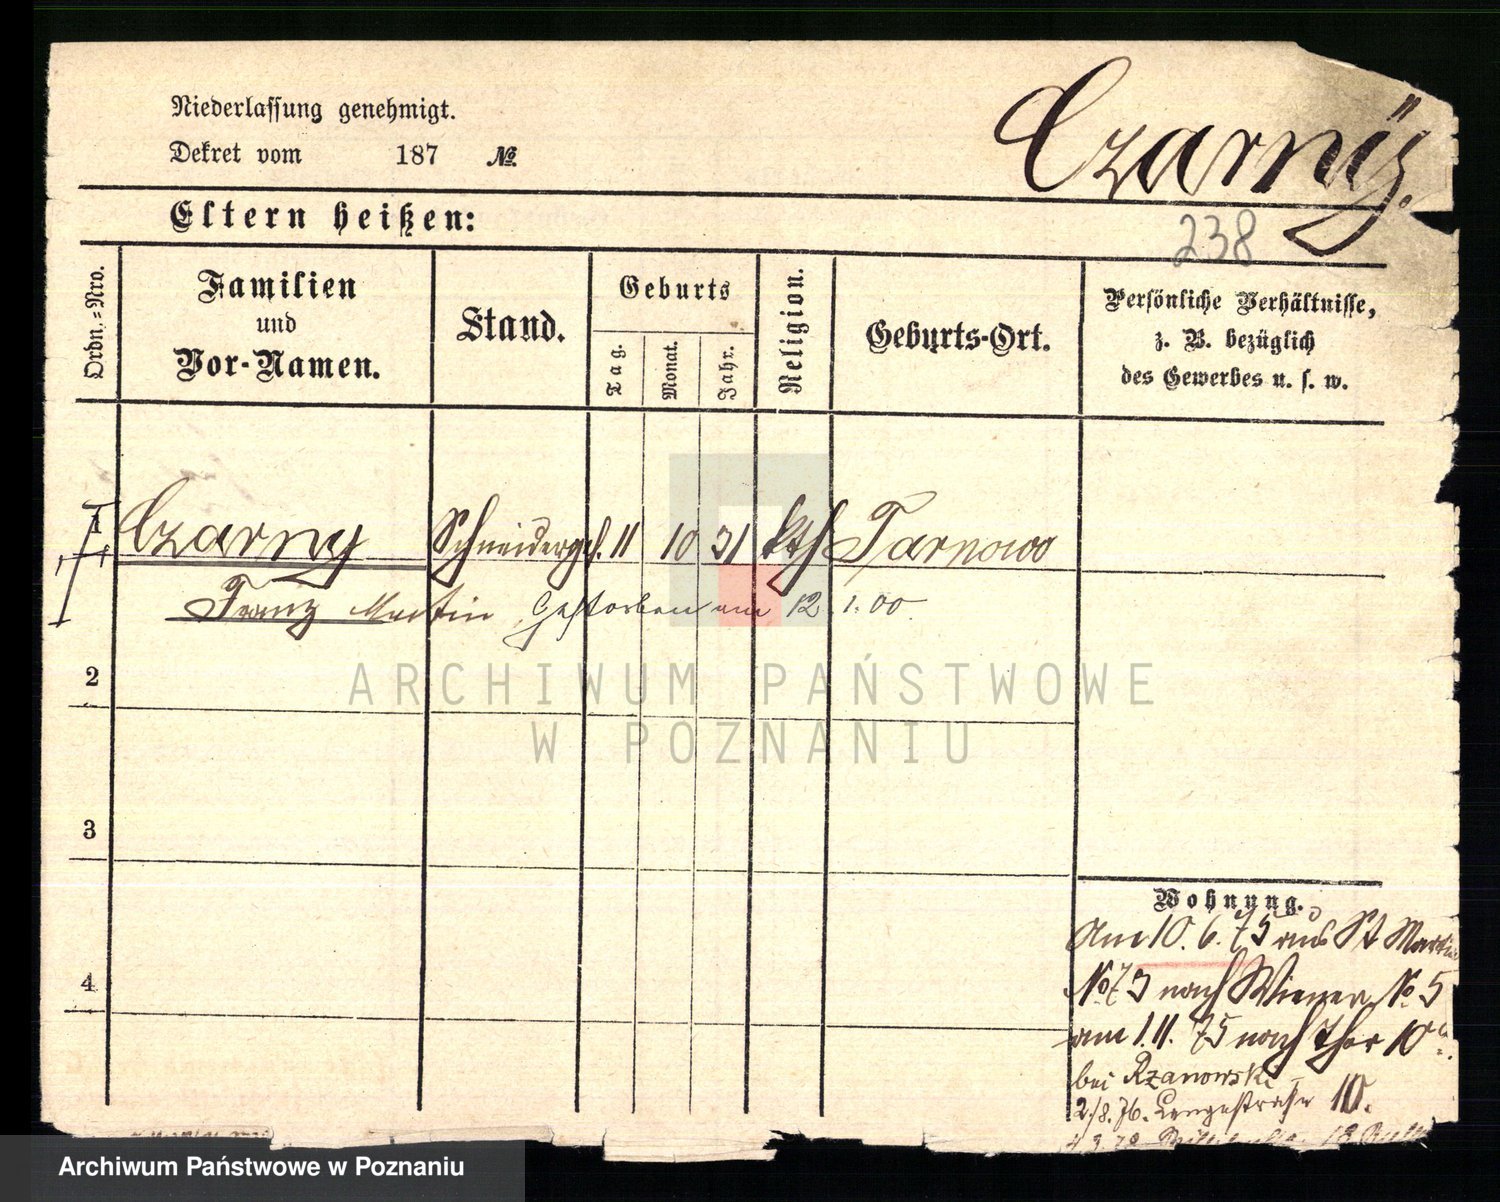 Niederlassung genehmigt.
Dekret vom 187 №
Czarny.
Eltern heißen:
238
Ordn.-Nro.
Familien
und
Vor-Namen.
Stand.
Geburts
Tag.
Monat.
Jahr.
Religion.
Geburts-Ort.
Persönliche Verhältnisse,
z. B. bezüglich
des Gewerbes u. s. w.
1 Czarny Schneiderges. 11 10 31 kth Tarnowo
Franz Martin Gestorben am 12.1.00.
2
ARCHIWUM PAŃSTWOWE
W POZNANIU
3
4
Wohnung.
Am 10.6.75 aus St Martin
No 73 nach Wiener No 5
am 1.11.75 nach Thor 10
bei Rzanowski
2/8.76. Langestraße 10.
Archiwum Państwowe w Poznaniu